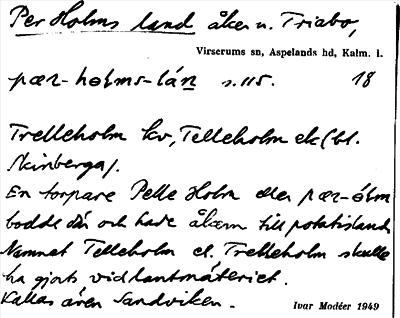 Per Holms land åker u. Triabo,
Virserums sn, Aspelands hd, Kalm. l.
pær-holms-lán s. 115. 18
Trelleholm kv, Telleholm ek (bl.
Skinberga).
En torpare Pelle Holm eller pær-ólm
bodde där och hade åkern till potatisland.
Namnet Telleholm el. Trelleholm skulle
ha gjorts vid lantmäteriet.
Kallas även Sandviken.
Ivar Modéer 1949